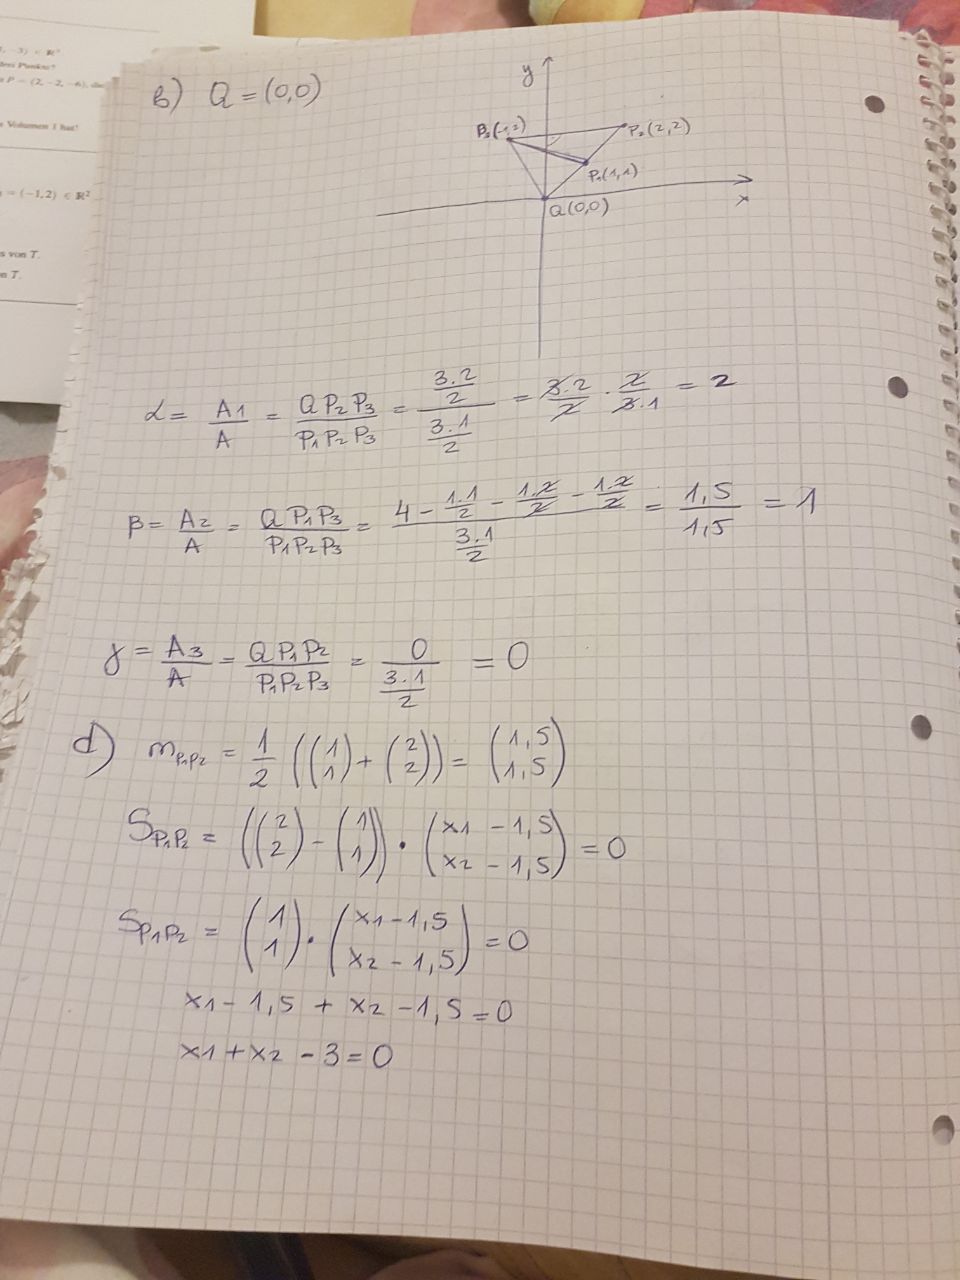 , -3) ∈ ℝ³
den Punkte?
P = (2, -2, -6), die
s Volumen 1 hat?
= (-1, 2) ∈ ℝ²
s von T.
n T.
b) Q = (0,0)
y
P₃(-1,2)
P₂(2,2)
P₁(1,1)
x
Q(0,0)
α = A1/A = QP₂P₃/P₁P₂P₃ = (3·2/2)/(3·1/2) = 3·2/2 · 2/3·1 = 2
β = A2/A = QP₁P₃/P₁P₂P₃ = (4 - 1·1/2 - 1·2/2 - 1·2/2)/(3·1/2) = 1,5/1,5 = 1
γ = A3/A = QP₁P₂/P₁P₂P₃ = 0/(3·1/2) = 0
d) m_P₁P₂ = 1/2 ((1 1) + (2 2)) = (1,5 1,5)
S_P₁P₂ = ((2 2) - (1 1)) · (x1 - 1,5 x2 - 1,5) = 0
S_P₁P₂ = (1 1) · (x1 - 1,5 x2 - 1,5) = 0
x1 - 1,5 + x2 - 1,5 = 0
x1 + x2 - 3 = 0